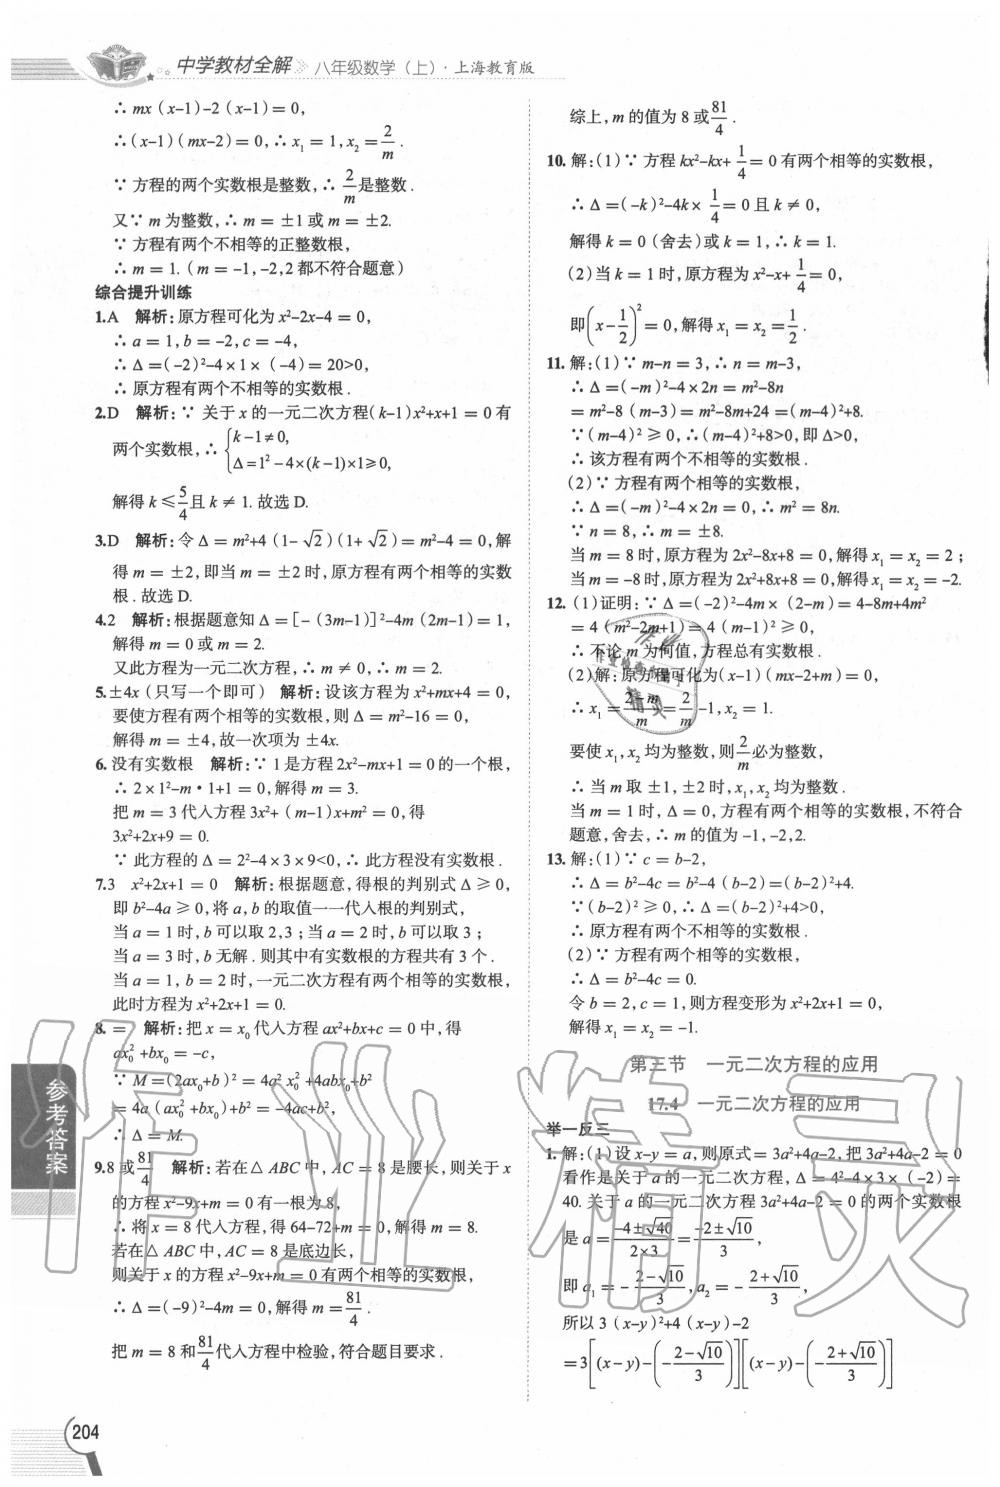 中学教材全解 八年级数学（上）·上海教育版
∴ mx（x-1）-2（x-1）=0，
∴（x-1）（mx-2）=0，∴ x₁=1，x₂=2/m.
∵ 方程的两个实数根是整数，∴ 2/m是整数.
又∵ m为整数，∴ m=±1或m=±2.
∵ 方程有两个不相等的正整数根，
∴ m=1.（m=-1，-2，2都不符合题意）
综合提升训练
1.A 解析：原方程可化为x²-2x-4=0，
∴ a=1，b=-2，c=-4，
∴ Δ=（-2）²-4×1×（-4）=20>0，
∴ 原方程有两个不相等的实数根.
2.D 解析：∵ 关于x的一元二次方程（k-1）x²+x+1=0有
两个实数根，∴ {k-1≠0，
Δ=1²-4×(k-1)×1≥0，
解得k≤5/4且k≠1.故选D.
3.D 解析：令Δ=m²+4（1-√2）（1+√2）=m²-4=0，解
得m=±2，即当m=±2时，原方程有两个相等的实数
根.故选D.
4.2 解析：根据题意知Δ=[-（3m-1）]²-4m（2m-1）=1，
解得m=0或m=2.
又此方程为一元二次方程，∴ m≠0，∴ m=2.
5.±4x（只写一个即可） 解析：设该方程为x²+mx+4=0，
要使方程有两个相等的实数根，则Δ=m²-16=0，
解得m=±4，故一次项为±4x.
6.没有实数根 解析：∵ 1是方程2x²-mx+1=0的一个根，
∴ 2×1²-m·1+1=0，解得m=3.
把m=3代入方程3x²+（m-1）x+m²=0，得
3x²+2x+9=0.
∵ 此方程的Δ=2²-4×3×9<0，∴ 此方程没有实数根.
7.3 x²+2x+1=0 解析：根据题意，得根的判别式Δ≥0，
即b²-4a≥0，将a，b的取值一一代入根的判别式，
当a=1时，b可以取2，3；当a=2时，b可以取3；
当a=3时，b无解.则其中有实数根的方程共有3个.
当a=1，b=2时，一元二次方程有两个相等的实数根，
此时方程为x²+2x+1=0.
8.= 解析：把x=x₀代入方程ax²+bx+c=0中，得
ax₀²+bx₀=-c，
∵ M=（2ax₀+b）²=4a²x₀²+4abx₀+b²
=4a（ax₀²+bx₀）+b²=-4ac+b²，
∴ Δ=M.
9.8或81/4 解析：若在△ABC中，AC=8是腰长，则关于x
的方程x²-9x+m=0有一根为8，
∴ 将x=8代入方程，得64-72+m=0，解得m=8.
若在△ABC中，AC=8是底边长，
则关于x的方程x²-9x+m=0有两个相等的实数根，
∴ Δ=（-9）²-4m=0，解得m=81/4.
把m=8和81/4代入方程中检验，符合题目要求.
综上，m的值为8或81/4.
10.解：（1）∵ 方程kx²-kx+1/4=0有两个相等的实数根，
∴ Δ=（-k）²-4k×1/4=0且k≠0，
解得k=0（舍去）或k=1，∴ k=1.
（2）当k=1时，原方程为x²-x+1/4=0，
即(x-1/2)²=0，解得x₁=x₂=1/2.
11.解：（1）∵ m-n=3，∴ n=m-3，
∴ Δ=（-m）²-4×2n=m²-8n
=m²-8（m-3）=m²-8m+24=（m-4）²+8.
∵（m-4）²≥0，∴（m-4）²+8>0，即Δ>0，
∴ 该方程有两个不相等的实数根.
（2）∵ 方程有两个相等的实数根，
∴ Δ=（-m）²-4×2n=0，∴ m²=8n.
∵ n=8，∴ m=±8.
当m=8时，原方程为2x²-8x+8=0，解得x₁=x₂=2；
当m=-8时，原方程为2x²+8x+8=0，解得x₁=x₂=-2.
12.（1）证明：∵ Δ=（-2）²-4m×（2-m）=4-8m+4m²
=4（m²-2m+1）=4（m-1）²≥0，
∴ 不论m为何值，方程总有实数根.
（2）解：原方程可化为（x-1）（mx-2+m）=0，
∴ x₁=2-m/m=2/m-1，x₂=1.
要使x₁，x₂均为整数，则2/m必为整数，
∴ 当m取±1，±2时，x₁，x₂均为整数.
当m=1时，Δ=0，方程有两个相等的实数根，不符合
题意，舍去，∴ m的值为-1，-2，2.
13.解：（1）∵ c=b-2，
∴ Δ=b²-4c=b²-4（b-2）=（b-2）²+4.
∵（b-2）²≥0，∴ Δ=（b-2）²+4>0，
∴ 原方程有两个不相等的实数根.
（2）∵ 方程有两个相等的实数根，
∴ Δ=b²-4c=0.
令b=2，c=1，则方程变形为x²+2x+1=0，
解得x₁=x₂=-1.
第三节 一元二次方程的应用
17.4 一元二次方程的应用
举一反三
1.解：（1）设x-y=a，则原式=3a²+4a-2，把3a²+4a-2=0
看作是关于a的一元二次方程，Δ=4²-4×3×（-2）=
40.关于a的一元二次方程3a²+4a-2=0的两个实数根
是a=-4±√40/2×3=-2±√10/3，
即a₁=-2-√10/3，a₂=-2+√10/3，
所以3（x-y）²+4（x-y）-2
=3[(x-y)-(-2-√10/3)][(x-y)-(-2+√10/3)]
参考答案
204
作业精灵